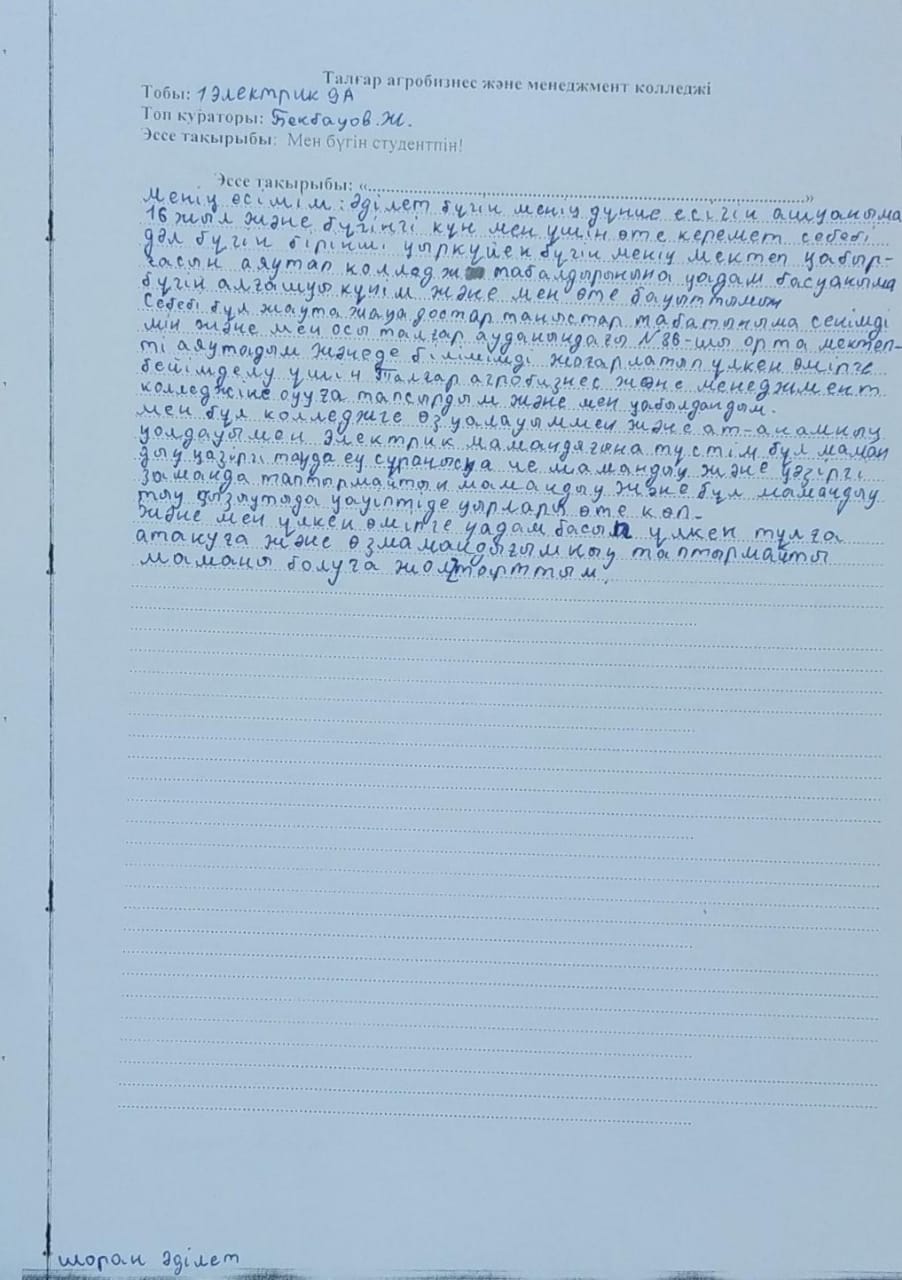 Талғар агробизнес және менеджмент колледжі
Тобы: 1 Электрик 9А
Топ кураторы: Бекбауов.Ж.
Эссе тақырыбы: Мен бүгін студентпін!
Эссе тақырыбы: «..........................................................»
Менің есімім: Әділет бүгін менің дүние есігін ашқаныма
16 жыл және бүгінгі күн мен үшін өте керемет себебі
дәл бүгін бірінші қыркүйек бүгін менің мектеп қабыр-
ғасын аяқтап колледж табалдырығына қадам басқаныма
бүгін алғашқы күнім және мен өте бақыттымын
себебі бұл жақта жаңа достар таныстар табатыныма сенімді
мін және мен осы талғар ауданындағы №36-шы орта мектеп-
ті аяқтадым жәнеде білімімді жоғарлатып үлкен өмірге
бейімделу үшін Талғар агробизнес және менеджмент
колледжіне оқуға тапсырдым және мен қабылдандым.
мен бұл колледжге өз қалауыммен және ат-анамның
қолдауымен Электрик мамандягына түстім бұл маман
дық қазіргі таңда ең сұранысқа ие мамандық және қәзіргі
заманда таптырмайтын мамандық және бұл мамандық
тың қызықтыда қауіптіде қырлары өте көп.
және мен үлкен өмірге қадам басып үлкен тұлға
атануға және өзмамандығымның таптырмайты
маманы болуға жол тарттым.
шоран Әділет